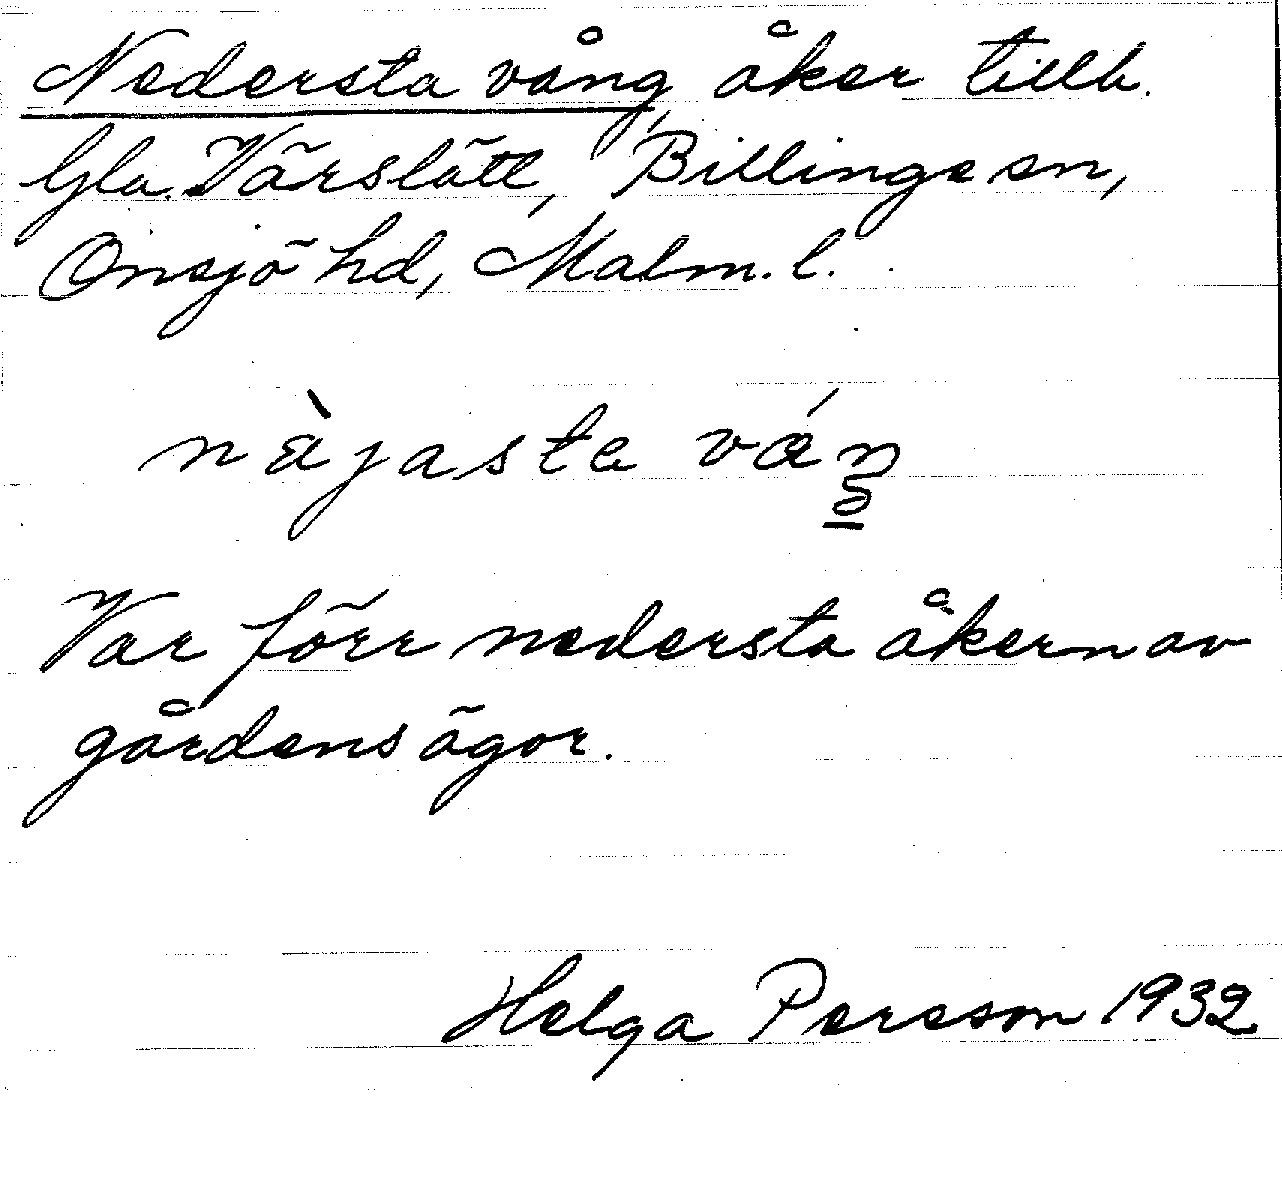 Nedersta vång åker tillh.
Gla. Värslätt, Billinge sn,
Onsjö hd, Malm. l.
nàjasta váŋ
Var förr nedersta åkern av
gårdens ägor.
Helga Persson 1932